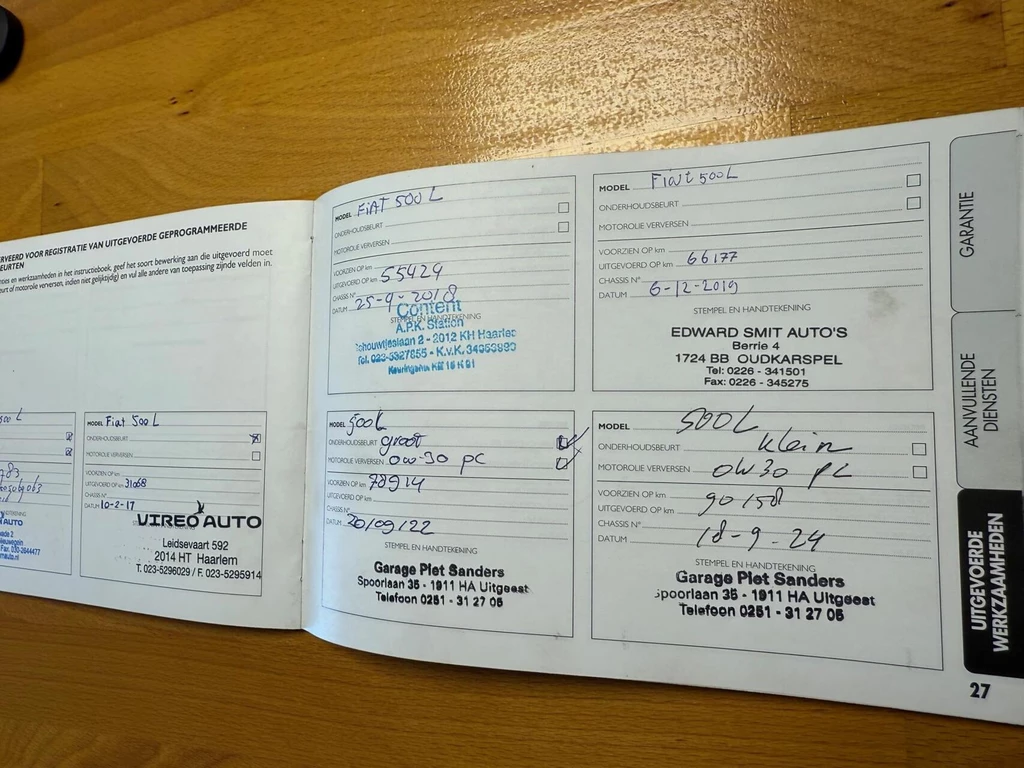 ERVEERD VOOR REGISTRATIE VAN UITGEVOERDE GEPROGRAMMEERDE
EURTEN
noies en werkzaamheden in het instructieboek, geef het soort bewerking aan die uitgevoerd moet
eurt of motorolie verversen, indien niet gelijktijdig) en vul alle andere van toepassing zijnde velden in.
500 L
783
MODEL Fiat 500L
ONDERHOUDSBEURT
MOTOROLIE VERVERSEN
VOORZIEN OP km
UITGEVOERD OP km 31068
CHASSIS N°
DATUM 10-2-17
VIREO AUTO
Leidsevaart 592
2014 HT Haarlem
T. 023-5296029 / F. 023-5295914
MODEL FIAT 500 L
ONDERHOUDSBEURT
MOTOROLIE VERVERSEN
VOORZIEN OP km
UITGEVOERD OP km 55429
CHASSIS N°
DATUM 25-9-2018
STEMPEL EN HANDTEKENING
Content
A.P.K. Station
Schouwtjeslaan 2 - 2012 KH Haarlem
Tel. 023-5327855 - K.v.K.
MODEL Fiat 500L
ONDERHOUDSBEURT
MOTOROLIE VERVERSEN
VOORZIEN OP km
UITGEVOERD OP km 66177
CHASSIS N°
DATUM 6-12-2019
STEMPEL EN HANDTEKENING
EDWARD SMIT AUTO'S
Berrie 4
1724 BB OUDKARSPEL
Tel: 0226 - 341501
Fax: 0226 - 345275
MODEL 500L
ONDERHOUDSBEURT groot
MOTOROLIE VERVERSEN 0w-30 pc
VOORZIEN OP km 78914
UITGEVOERD OP km
CHASSIS N°
DATUM 20/09/22
STEMPEL EN HANDTEKENING
Garage Piet Sanders
Spoorlaan 35 - 1911 HA Uitgeest
Telefoon 0251 - 31 27 05
MODEL 500L
ONDERHOUDSBEURT klein
MOTOROLIE VERVERSEN 0W30 pc
VOORZIEN OP km
UITGEVOERD OP km 90158
CHASSIS N°
DATUM 18-9-24
STEMPEL EN HANDTEKENING
Garage Piet Sanders
Spoorlaan 35 - 1911 HA Uitgeest
Telefoon 0251 - 31 27 05
GARANTIE
AANVULLENDE
DIENSTEN
UITGEVOERDE
WERKZAAMHEDEN
27